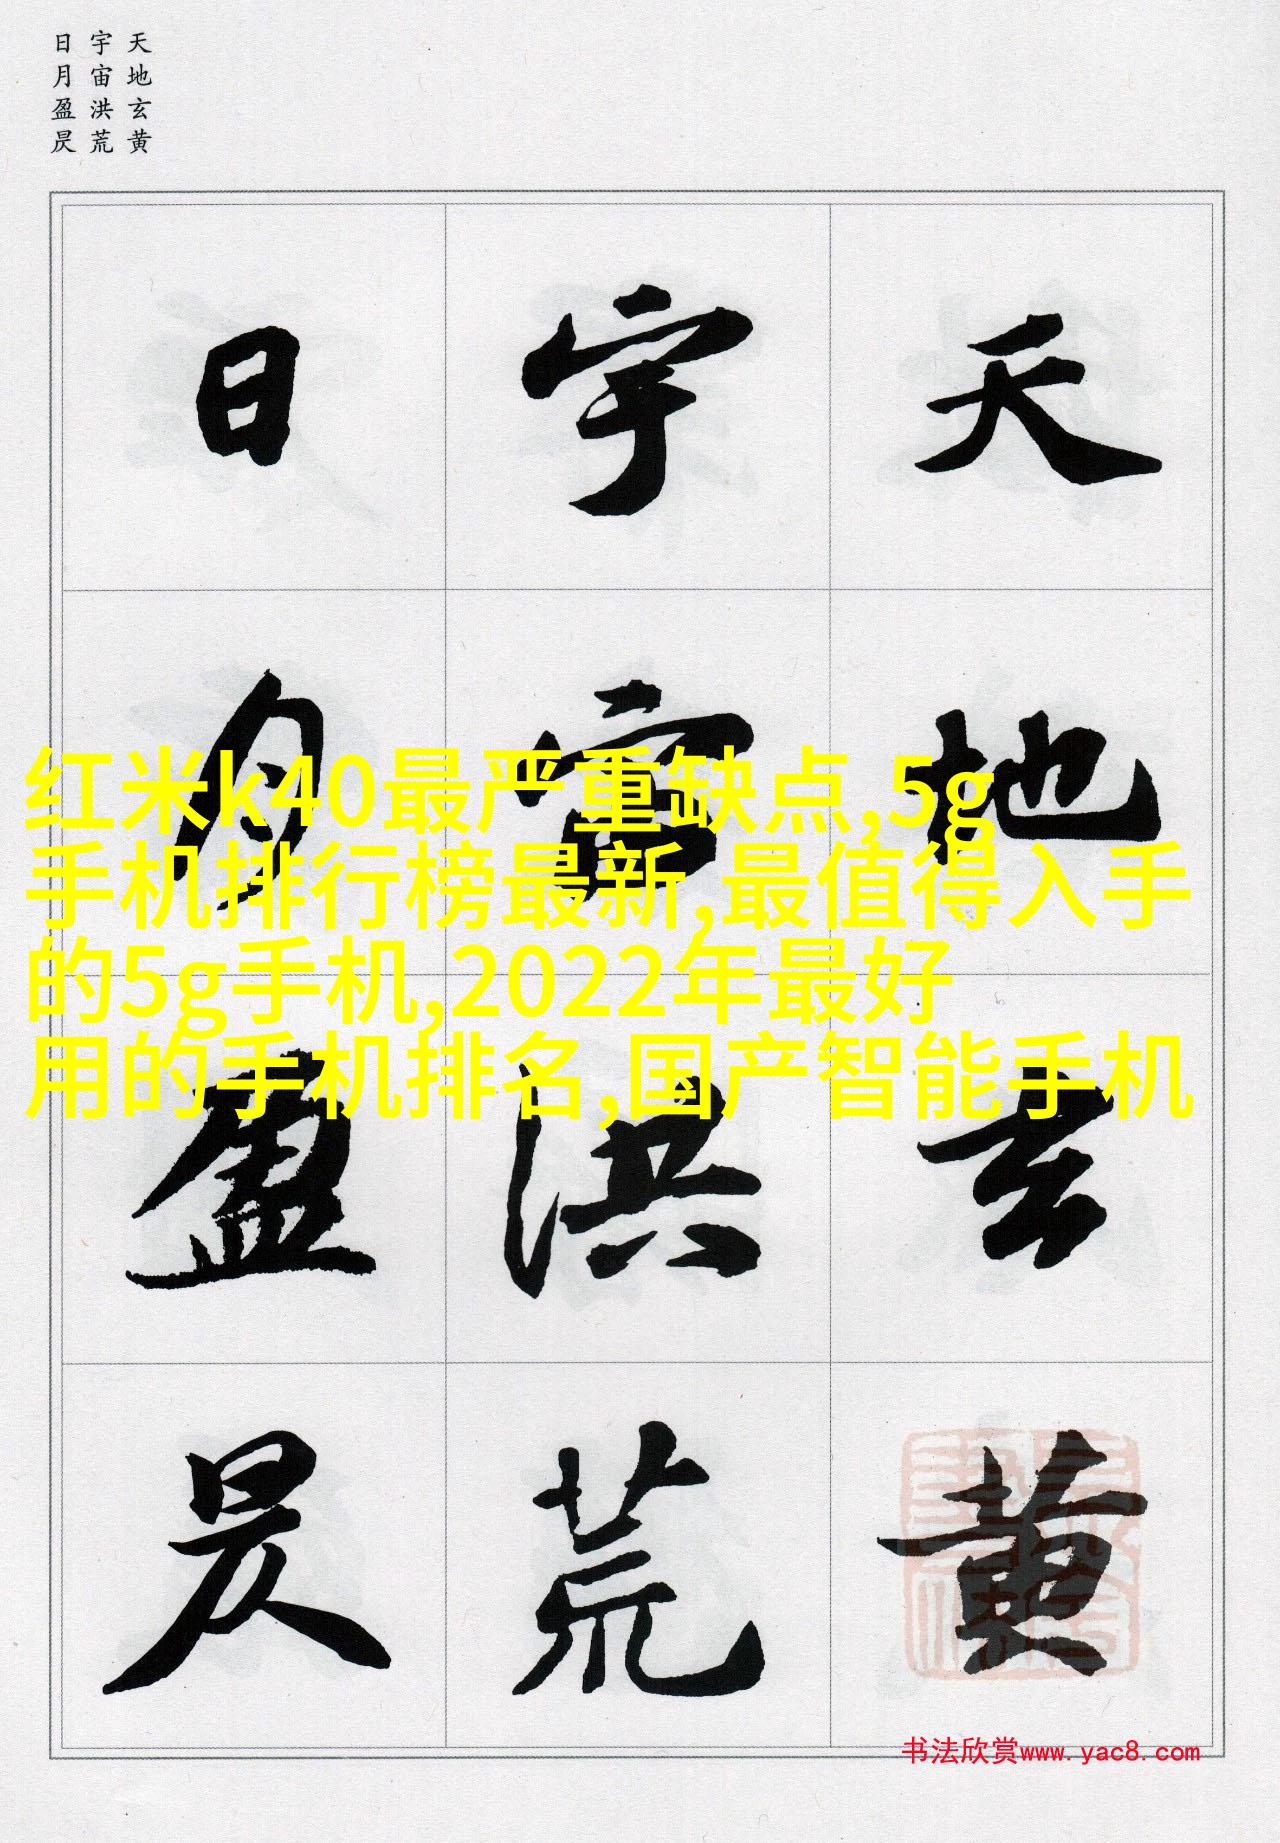 天地玄黄
宇宙洪荒
日月盈昃
天地玄黄
宇宙洪荒
日月盈昃
红米k40最严重缺点,5g
手机排行榜最新,最值得入手
的5g手机,2022年最好
用的手机排名,国产智能手机
书法欣赏www.yac8.com